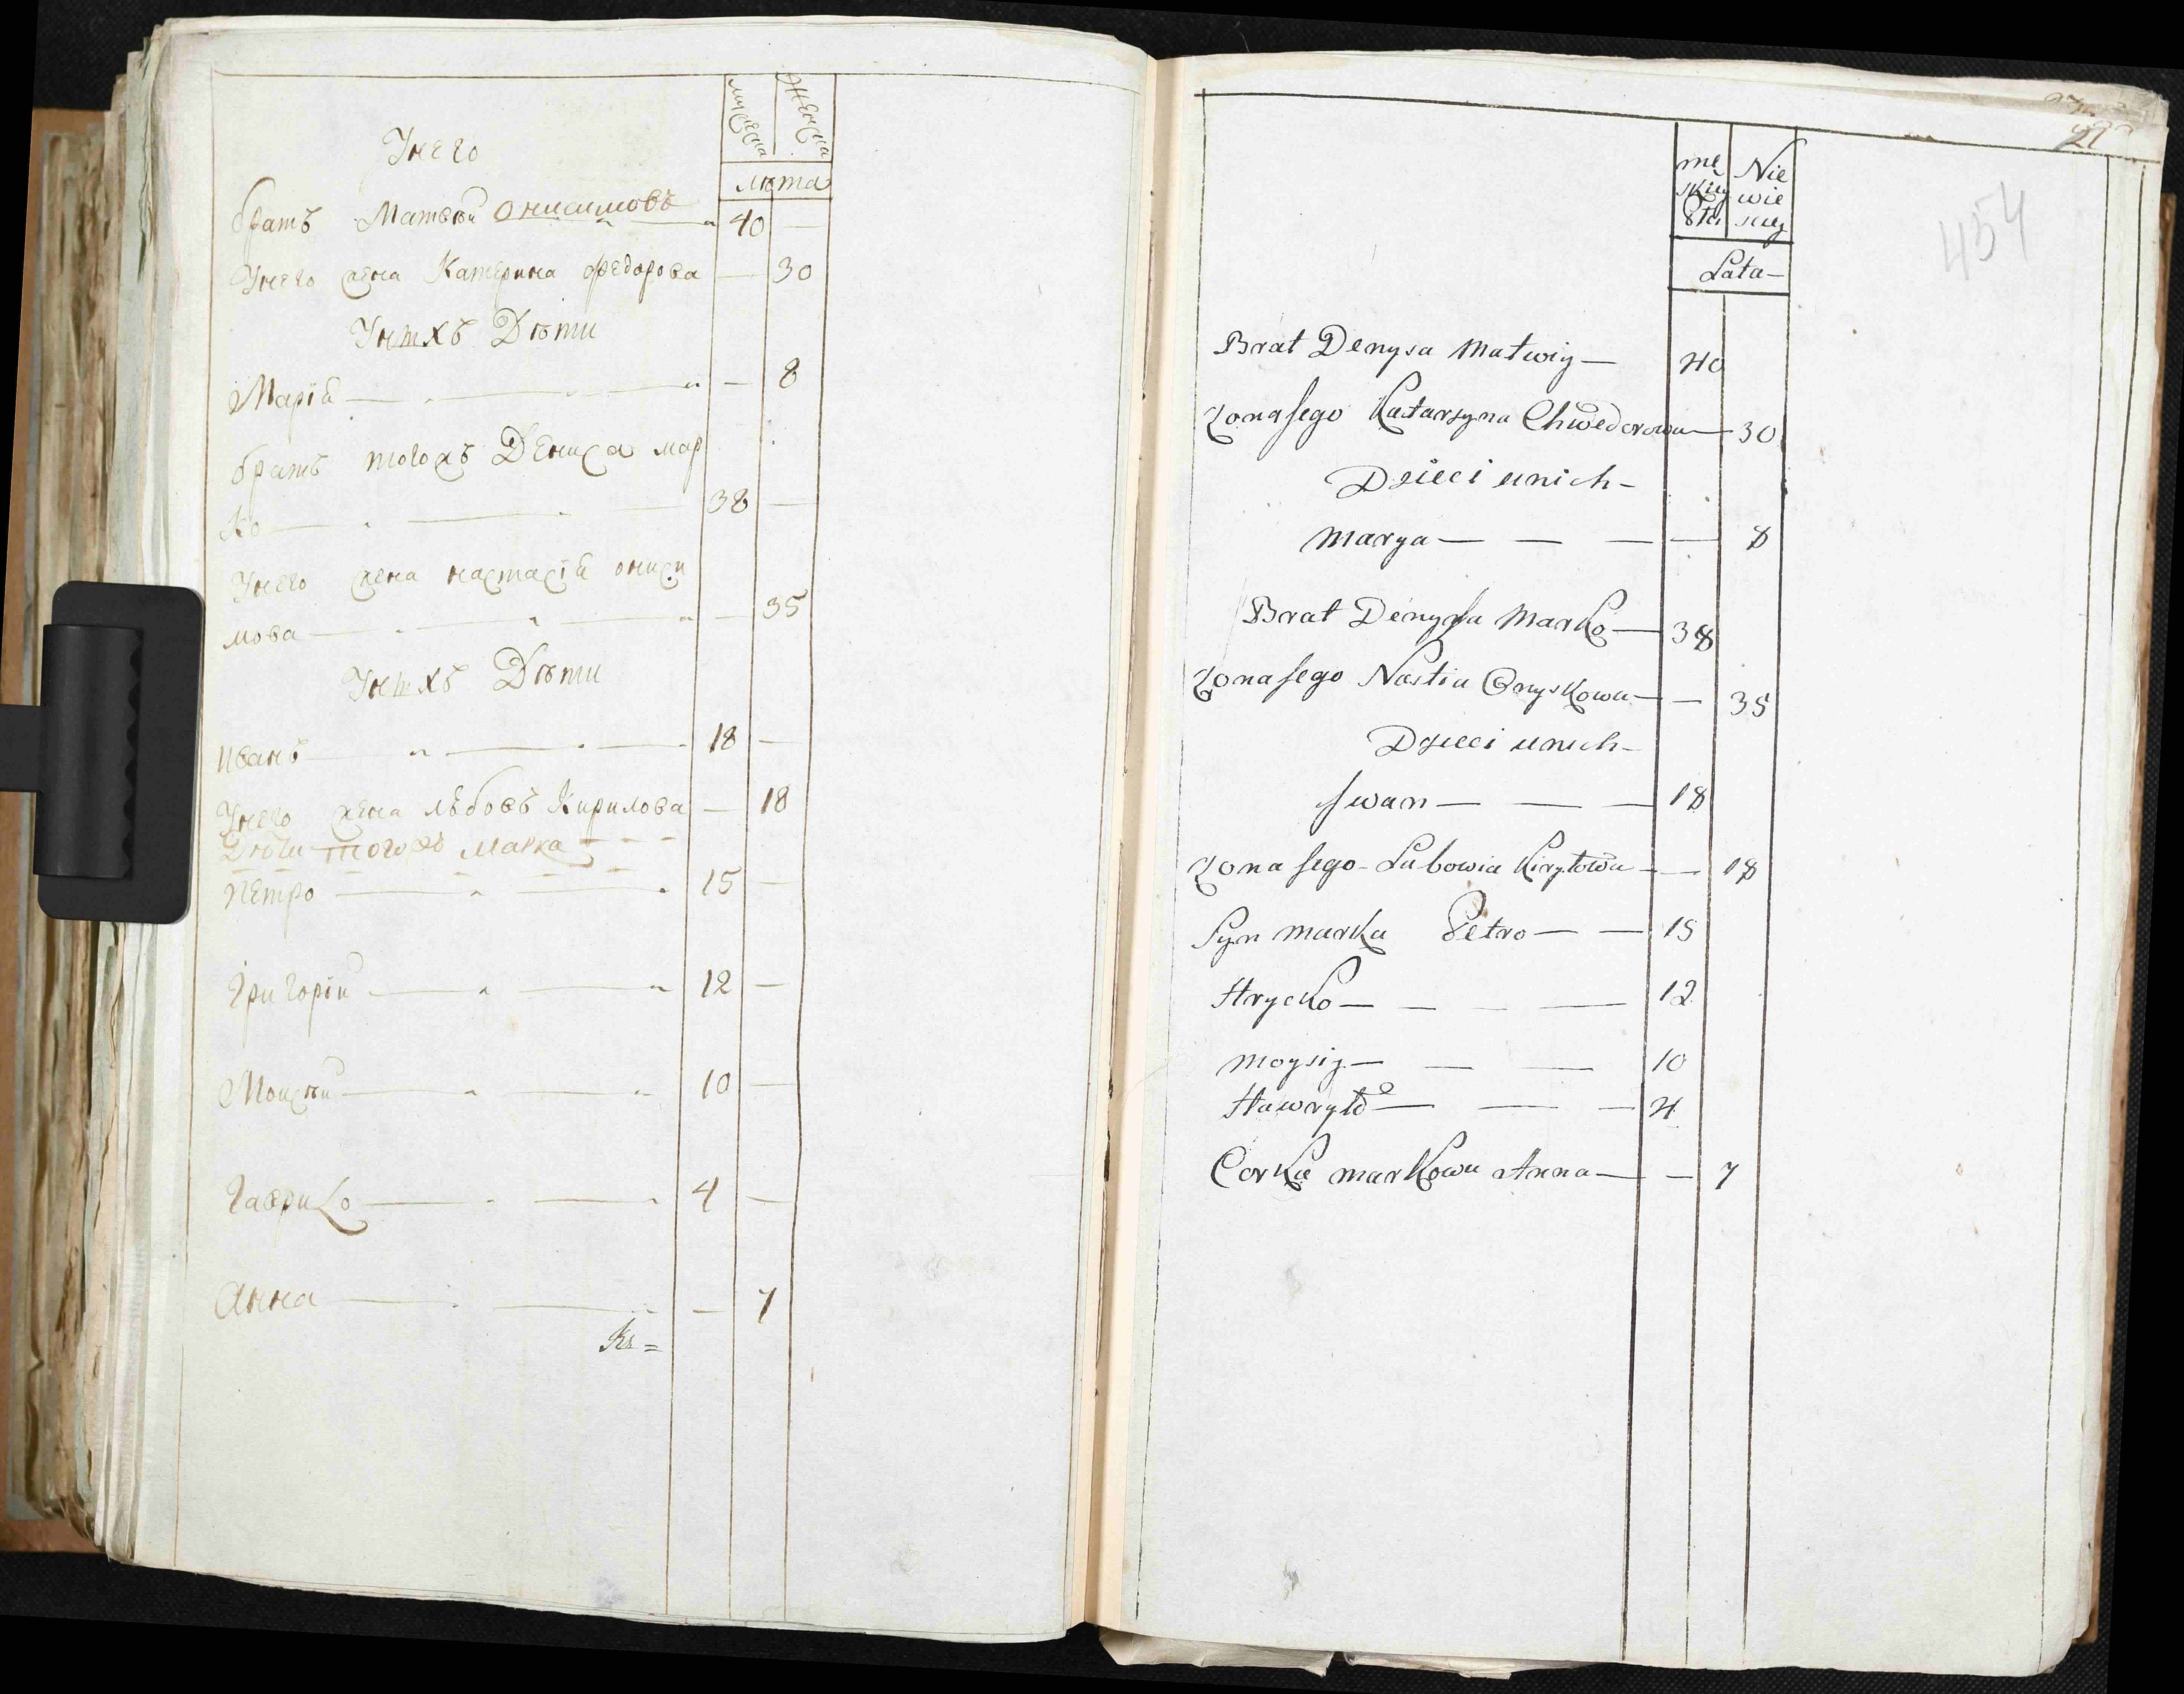 мужеска женска
лѣта
У него
братъ Матвѣй Онисимовъ 40 —
У него жена Катерина Федорова — 30
У нихъ Дѣти
Марія — 8
братъ тогожъ Дениса Мар
ко 38 —
У него жена настасія ониси
мова — 35
У нихъ Дѣти
иванъ 18 —
У него жена любовъ Кирилова — 18
Дѣти тогожъ Марка
Петро 15 —
Григорій 12 —
Моисѣй 10 —
Гаврило 4 —
Анна — 7
27
454
mę Nie
skiey wie
Płci sciey
Lata —
Brat Denysa Matwiy — 40
Zona Jego Katarzyna Chwedorowa — 30
Dzieci u nich —
Marya — — — — 8
Brat Denysa Marko — 38
Zona Jego Nastia Onyskowa — — 35
Dzieci u nich —
Iwan — — — 18
Zona Jego - Lubowia Kiryłowa — — 18
Syn Marka Petro — — 15
Hrycko — — — — 12
Moysiy — — — 10
Hawryło — — — 4
Corka Markowa Anna — — 7